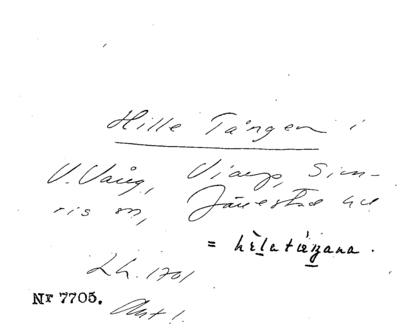 Hille Tången i
V. Vång, Viarp, Sim-
ris sn, Järrestad hd
= hèlatæŋana.
Lh. 1701
Nr 7705.
Ant 1.